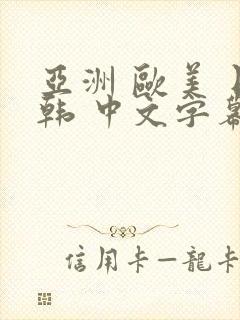 亞洲 歐美
韩 中文字幕
信用卡—龍卡